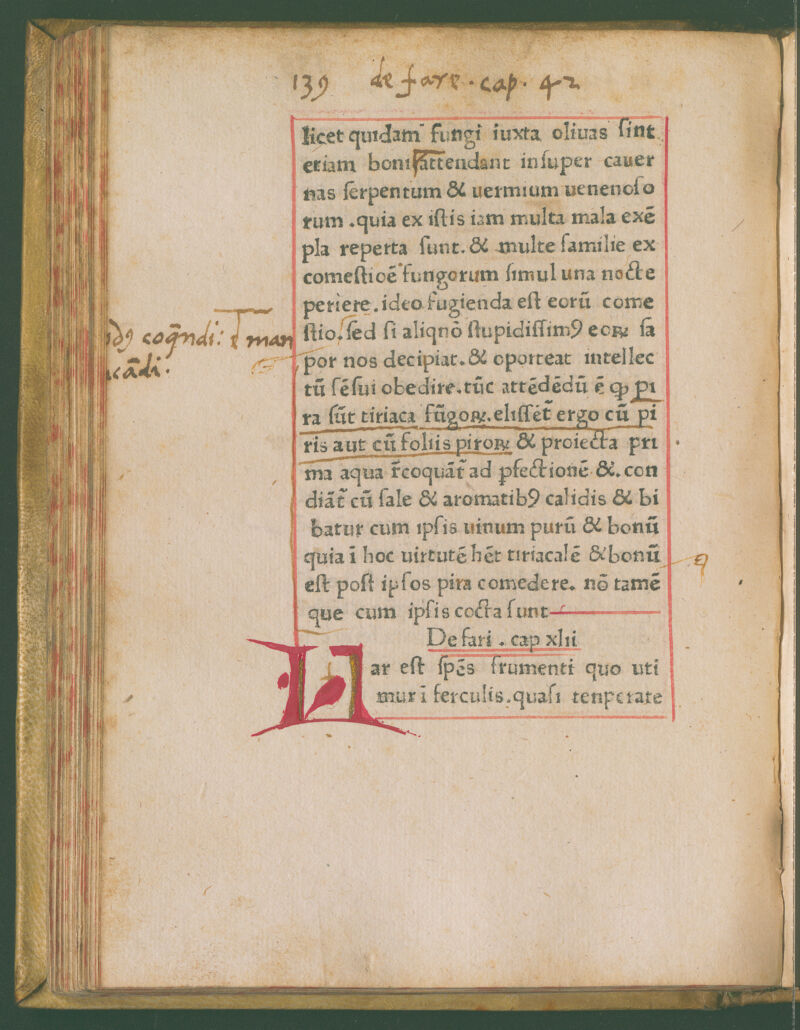 139 de fare . cap . 42
licet quidam fungi iuxta oliuas ſint
etiam boni attendant inſuper cauer
nas ſerpentum & uermium uenenoſo
rum .quia ex iſtis iam multa mala exē
pla reperta ſunt. & multe familie ex
comeſticē fungorum ſimul una nocte
periere. ideo fugienda eſt eorū come
ſtio. ſed ſi aliqnō ſtupidiſſimꝰ eoꝝ ſa
por nos decipiat. & oporteat intellec
tū ſēſui obedire. tūc attēdēdū ē ꝙ pi
ra ſūt tiriaca fūgoꝝ. eliſſēt ergo cū pi
ris aut cū foliis piroꝝ & proiecta pri
ma aqua r̄coquāt̄ ad pfectionē &. con
diāt̄ cū ſale & aromatibꝰ calidis & bi
batur cum ipſis uinum purū & bonū
quia ī hoc uirtutē hēt tiriacalē & bonū
eſt poſt ipſos pira comedere. nō tamē
que cum ipſis cocta ſunt
coq̄ndi: & man
cādi.
De fari . cap xlii
Far eſt ſpēs frumenti quo uti
mur ī ferculis. quaſi tenperate